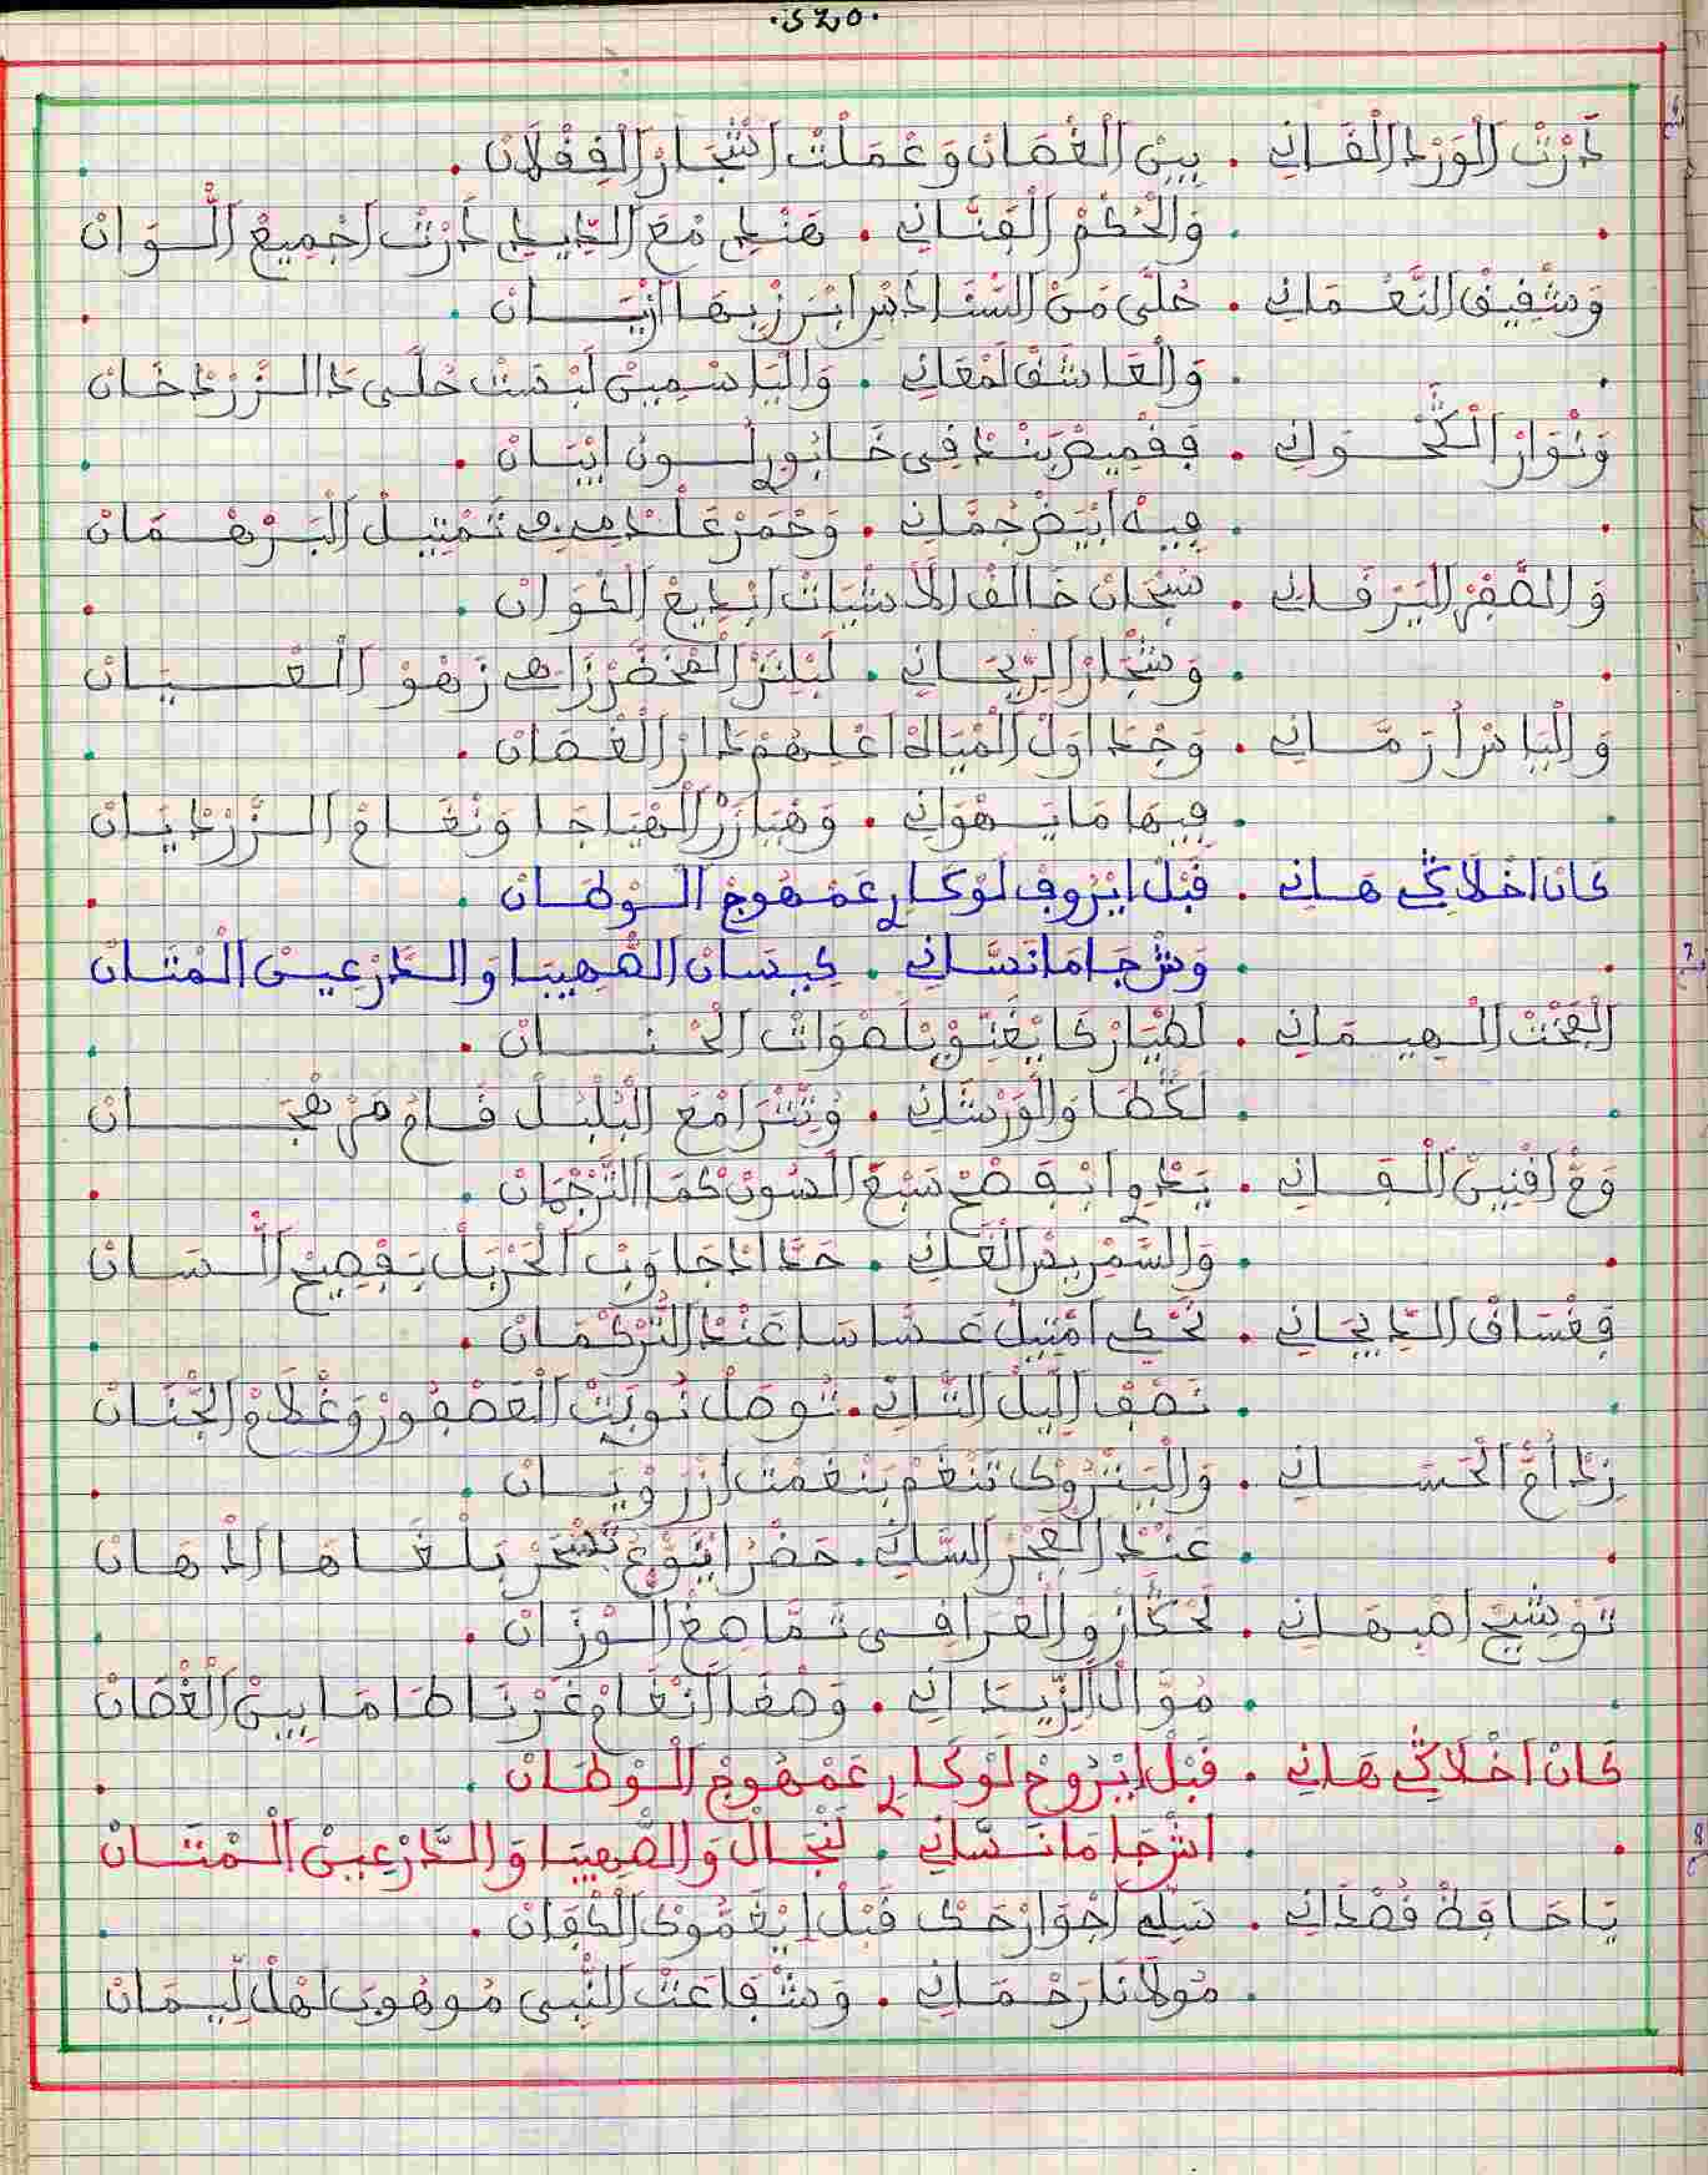 دَرْتْ الْوَرْدْ الْقَانِي . بِينْ الْغْصَانْ وَعْمَلْتْ اشْجَارْ الْقِقْلَانْ .
وَالْحُكْمْ الْفَنَّانِي . هَنْدِي مْعَ الدِّيدِي دَرْتْ اجْمِيعْ الْوَانْ
وَشْقِيقْ النَّعْمَانِي . حُلَّى مَنْ السَّنْدَادَسْ ابْرَزْ بِهَا ازْيَانْ .
وَالْعَاشَقْ لَمْعَانِي . وَالْيَاسْمِينْ لَبْسَتْ حُلَّى دَ الزَّرْدْخَانْ
وَنْوَارْ الْكُّحْوَانِي . فِقْمِيصْ بَنْدْقِي خَابُورِي لُونْ ابْيَانْ .
فِيهْ ابْيَضْ جُمَّانِي . وَحْمَرْ عَنْدْمِي فِي تَمْتِيلْ الْبَرْهْمَانْ
وَالصْفَرْ الْيَرْقَانِي . سُبْحَانْ خَالَقْ الْأَشْيَاتْ ابْدِيعْ الْكْوَانْ .
وَشْجَارْ الرِّيحَانِي . لَبْلِنْزْ الْمْخَضَّرْ زَاهِي زَهْوْ الْعْيَانْ
وَالْيَاسْ ارَمَّانِي . وَجْدَاوَلْ الْمْيَاهْ اعْلِيهُمْ دَارْ الْغْصَانْ .
فِيهَا مَا يَهْوَانِي . وَهْبَازَرْ الْهْيَاجَا وَنْغَامْ الزَّرْدْيَانْ
كَانْ اخْلَاكِّي هَانِي . قَبْلْ ايْرُوفْ لَوْكَارِي عَمْهُوجْ الْوْطَانْ .
وَشْرْجَامَا نَسَّانِي . كِيسَانْ الصّْهِيبَا وَالدَّرْعِينْ الْمْتَانْ
الْبَخْتْ الْهِيمَانِي . لَطْيَارْ كَا يْغَنِّيوْ بْلَصْوَاتْ الْحْنَانْ .
لَكْطَا وَالْوَرْشَانِي . وَتْشْرَا مْعَ الْبُلْبُلْ قَامُ مَنْ هَجْرَانْ
وَمّْ اقْنِينْ الْفَانِي . يَدْوِي ابْفَصْحْ سَبْعْ الْسُونْ كْمَا التَّرْجْمَانْ .
وَالسّْمَرِيسْ الْغَانِي . حَدَّادْ جَاوَبْ الْحَرْبَلْ بَفْصِيحْ الْسَانْ
فِغْسَاقْ الدِّيجَانِي . نَحْكِي امْتِيلْ عَسَّاسَا عَنْدْ التَّرْكْمَانْ .
نَصْفْ اللِّيلْ التَّانِي . تُوصَلْ نُوبَتْ الْعَصْفُورْ وَغْلَامْ الْجّْنَانْ
زِدْ أُمّْ الْحَسَانِي . وَالْبَنْزُوكْ تَنْغَمْ بَنْغَمْتْ ازَرْوْيَانْ .
عَنْدْ الْفَجْرْ السَّانِي . حَضْرْ ايْبَوّْعْ تَسْحَرْ بَلْغَاهَا الدْهَانْ
تَوْشِيحْ اصْبَهَانِي . لَحْكّْارْ وَالْعْرَافِي تَمَّا مْعَ الْوْزَانْ .
مُوَّالْ الزِّيدَانِي . وَصْغَا الَنْغَامْ غَرْنَاطَا مَا بِينْ الْغْصَانْ
كَانْ اخْلَاكِّي هَانِي . قَبْلْ ايْرُوحْ لَوْكَارِي عَمْهُوجْ الْوْطَانْ .
اشْرْجَامَا نَسَّانِي . لَنْجَالْ وَالصّْهِيبَا وَالدَّرْعِينْ الْمْتَانْ
يَا حَافِظْ قُصْدَانِي . سَيّْلِي اجْوَارْحَكْ قَبْلْ ايْغَمّْوكْ الْكْفَانْ .
مُولَانَا رَحْمَانِي . وَشْفَاعَتْ النّْبِي مُوهُوبَا لَهْلْ لِيمَانْ